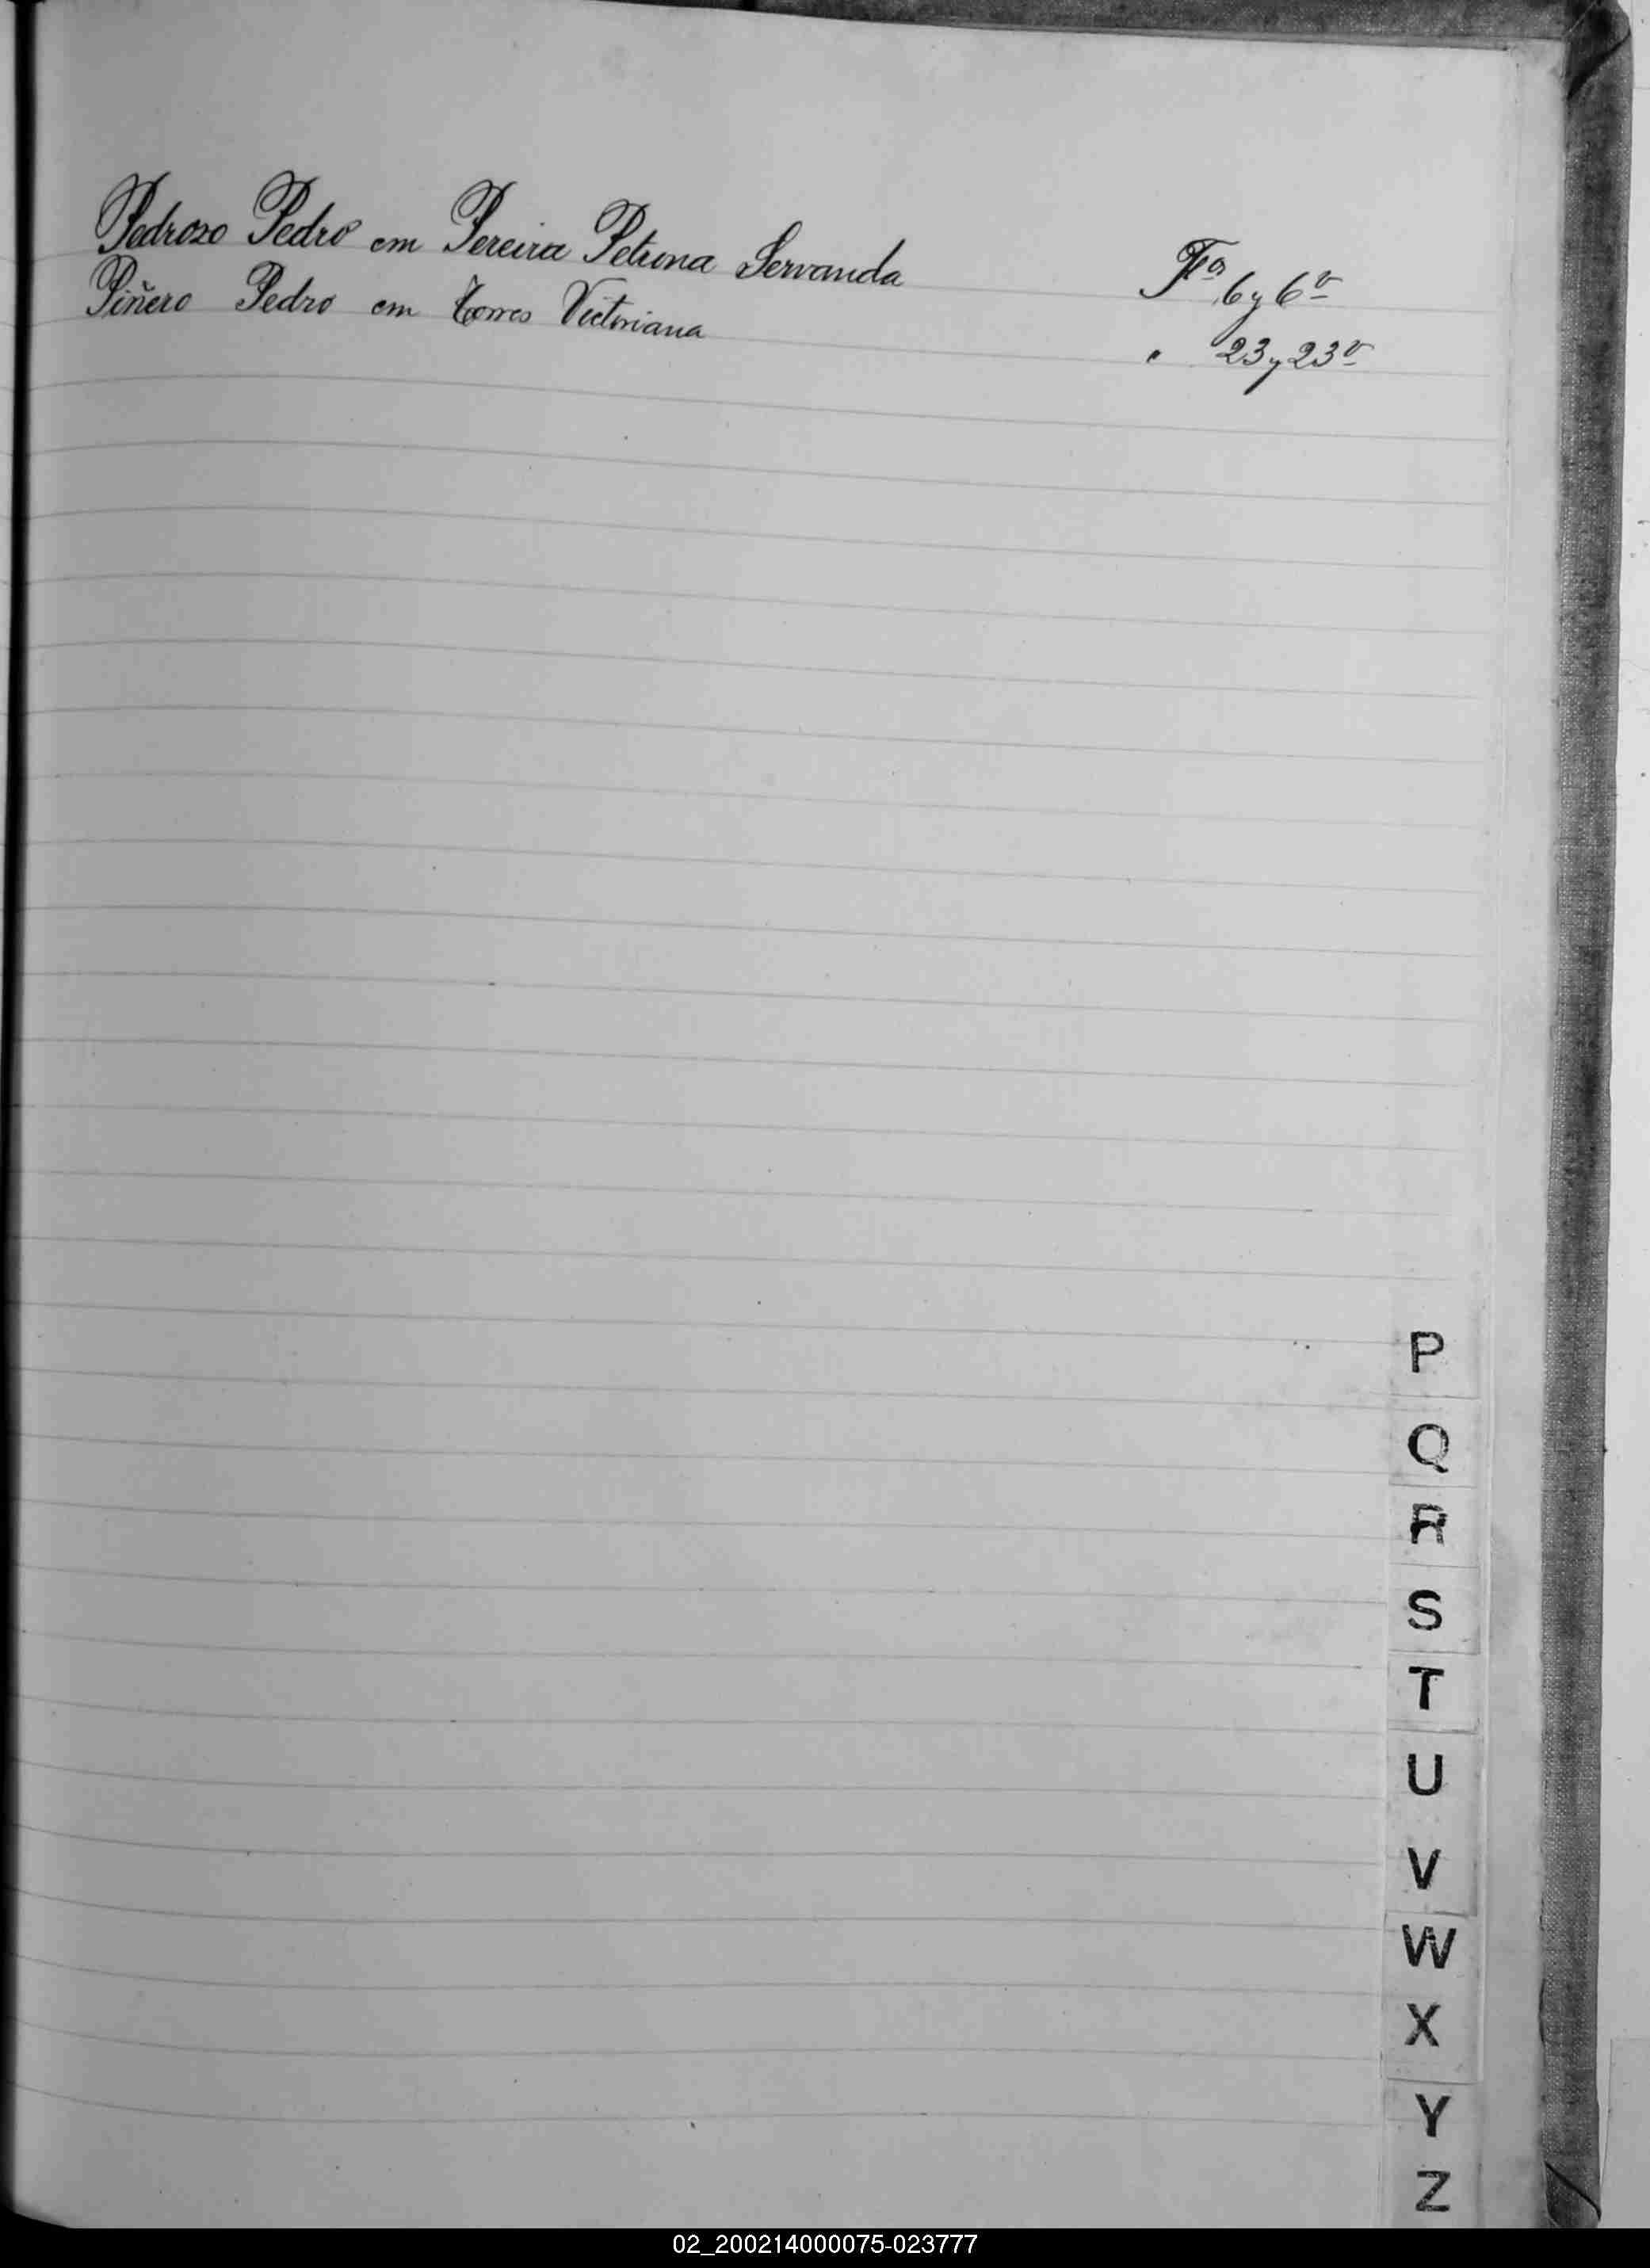 Pedrozo Pedro con Pereira Petrona Servanda Fos 6 y 6v
Piñero Pedro con Torres Victoriana " 23 y 23v
P
Q
R
S
T
U
V
W
X
Y
Z
02_200214000075-023777